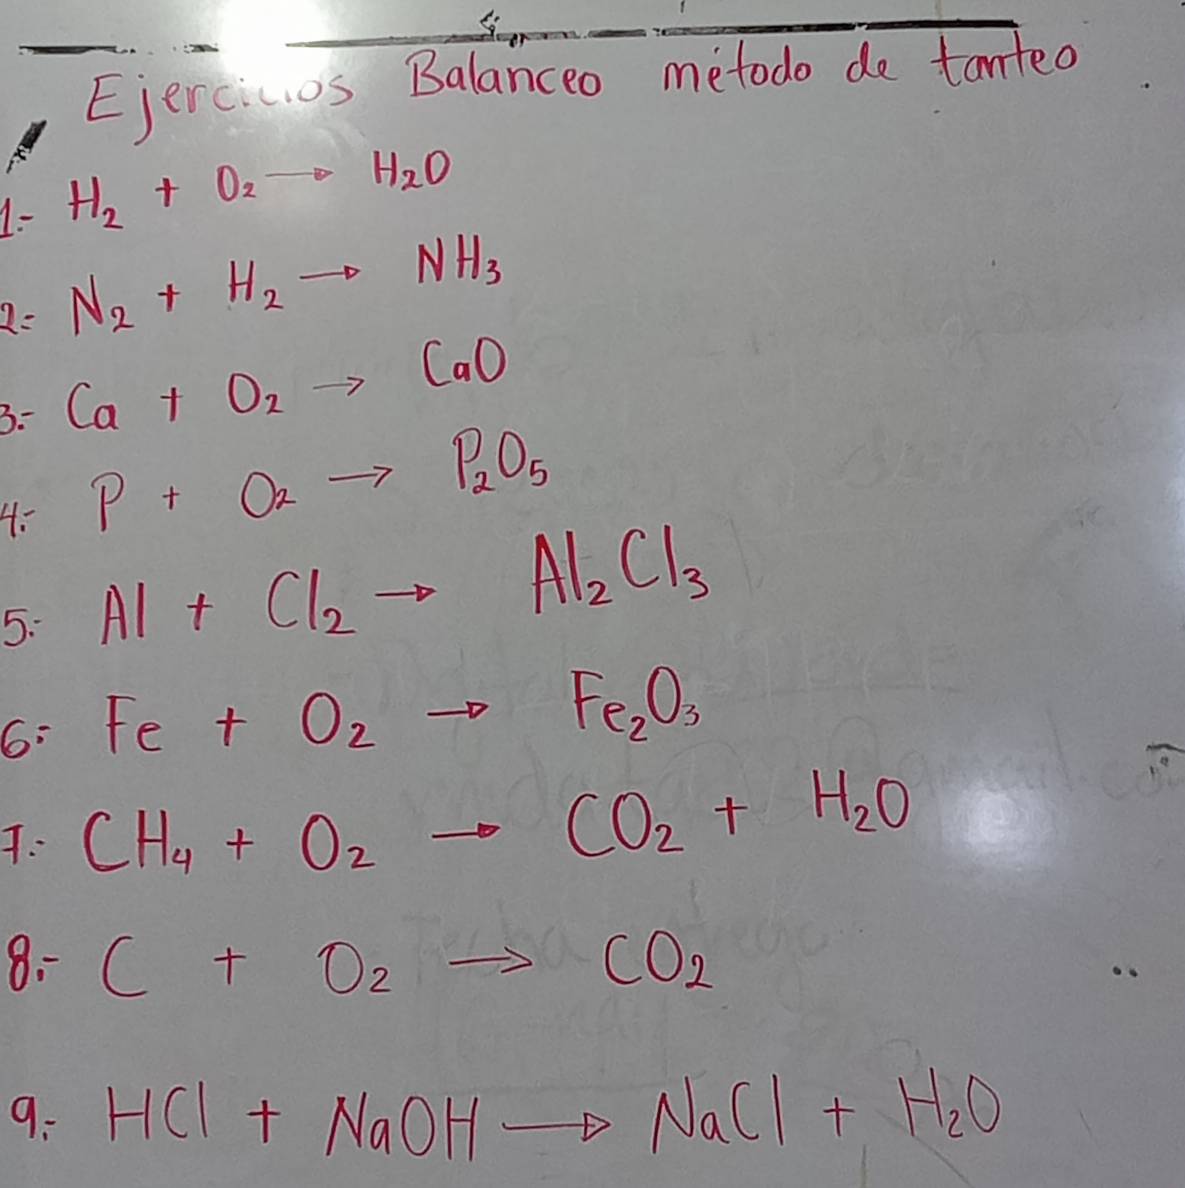 Ejercicios Balanceo método de tanteo
1.- H₂ + O₂ → H₂O
2.- N₂ + H₂ → NH₃
3.- Ca + O₂ → CaO
4.- P + O₂ → P₂O₅
5.- Al + Cl₂ → Al₂Cl₃
6.- Fe + O₂ → Fe₂O₃
7.- CH₄ + O₂ → CO₂ + H₂O
8.- C + O₂ → CO₂
9.- HCl + NaOH → NaCl + H₂O